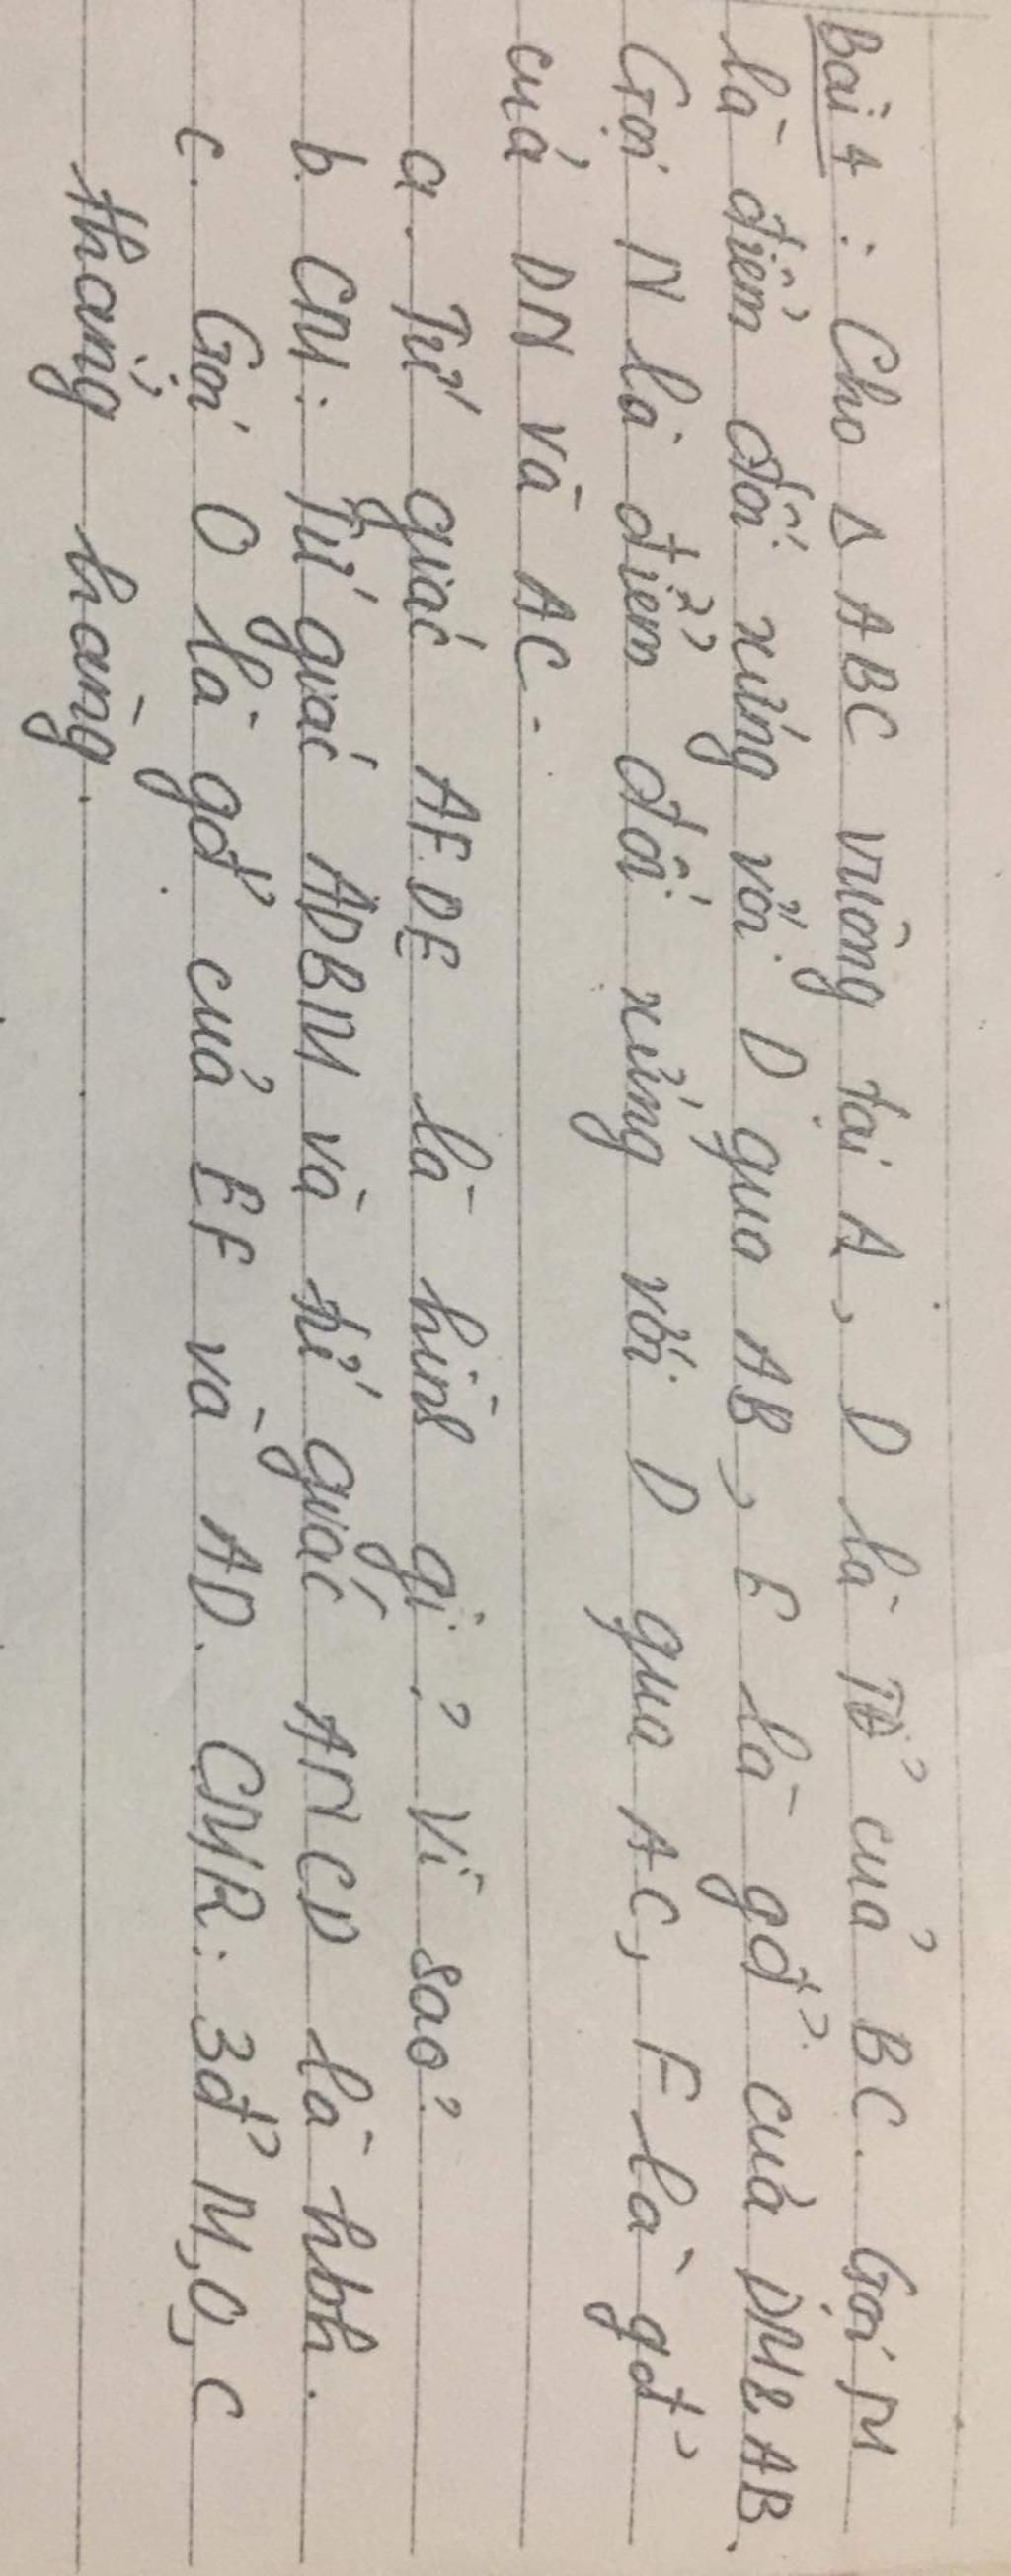 Bài 4 : Cho Δ ABC vuông tại A, D là TĐ' của BC. Gọi M
là điểm đối xứng với D qua AB, E là gđ' của DM & AB.
Gọi N là điểm đối xứng với D qua AC, F là gđ'
của DN và AC.
a. Tứ giác AEDF là hình gì? Vì sao?
b. CM: Tứ giác ADBM và tứ giác ANCD là hbh.
c. Gọi O là gđ' của EF và AD. CMR: 3đ' M, O, C
thẳng hàng.